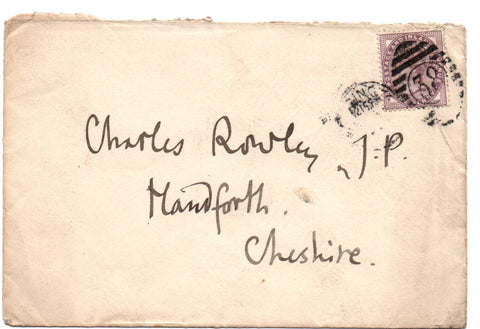 38
Charles Rowley, J.P.
Handforth.
Cheshire.